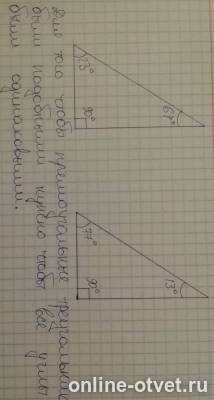 67°
23°
90°
13°
77°
90°
Для того чтобы прямоугольные
были подобными нужно чтобы все углы
были одинаковыми.
online-otvet.ru